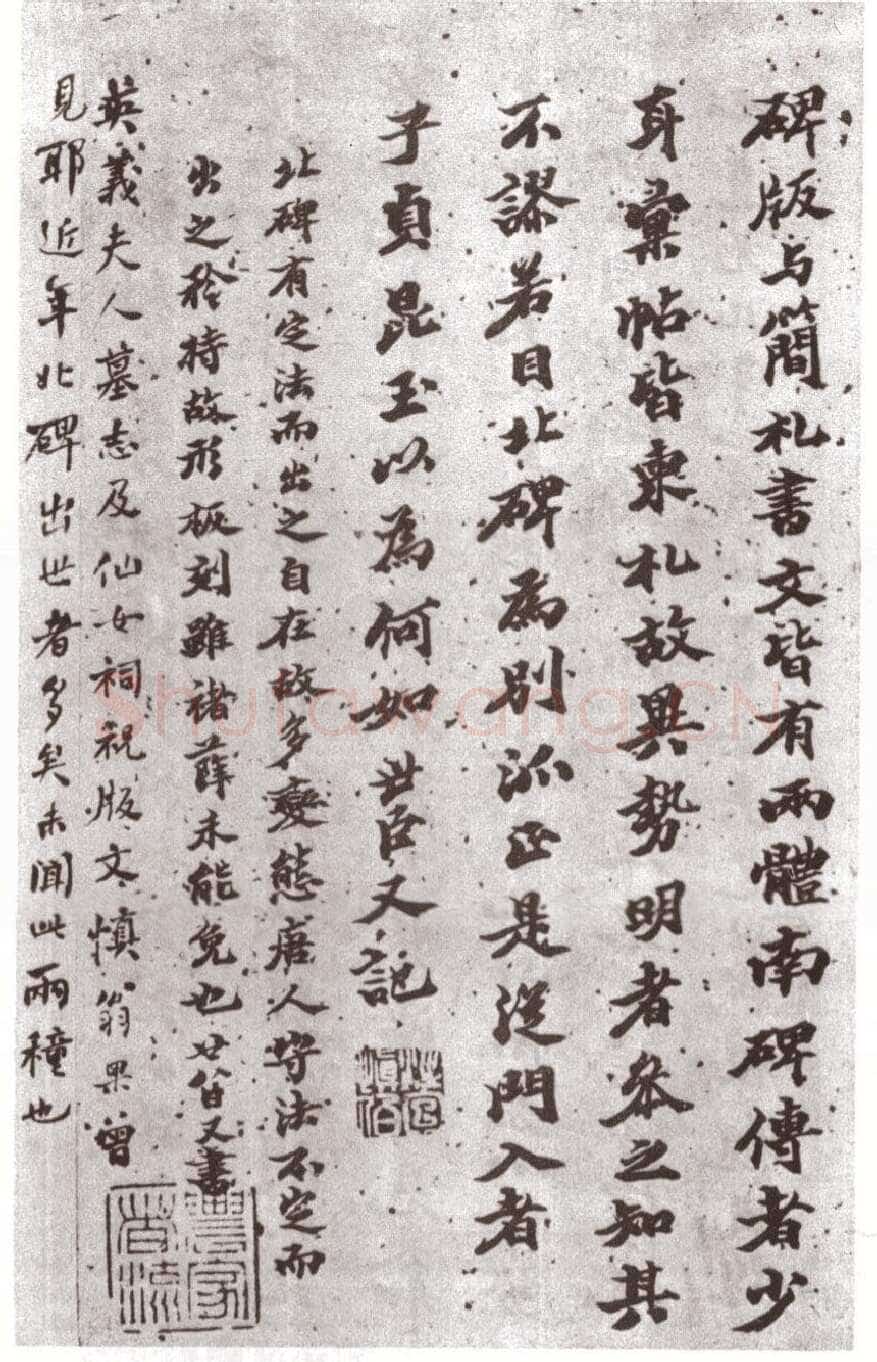 碑版与簡札書文皆有兩體南碑傳者少
耳彙帖皆柬札故具勢明者叅之知其
不謬若目北碑為別派正是從門入者
子貞昆玉以為何如世臣又記
北碑有定法而出之自在故多變態唐人守法不定而
出之矜持故形板刻雖褚薛未能免也廿八日又書
英義夫人墓志及仙女祠祝版文慎翁果曾
見耶近年北碑出世者多矣未聞此兩種也
農家者流
shufawang.CN